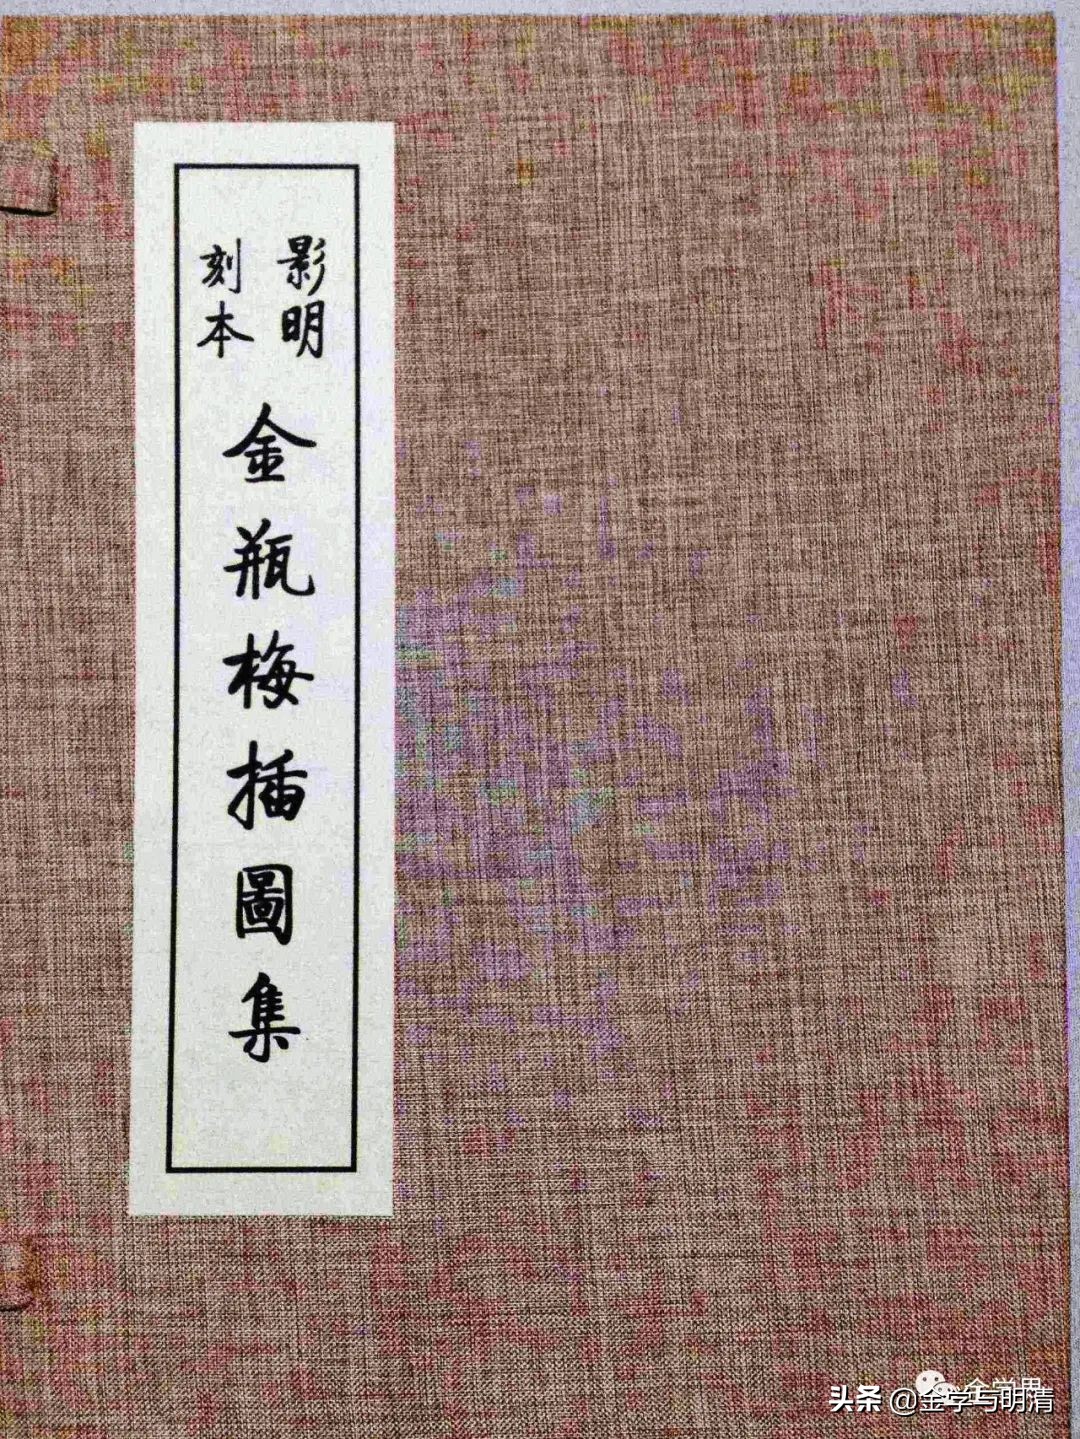 影明
刻本
金瓶梅插圖集
金学界
头条 @金学与明清